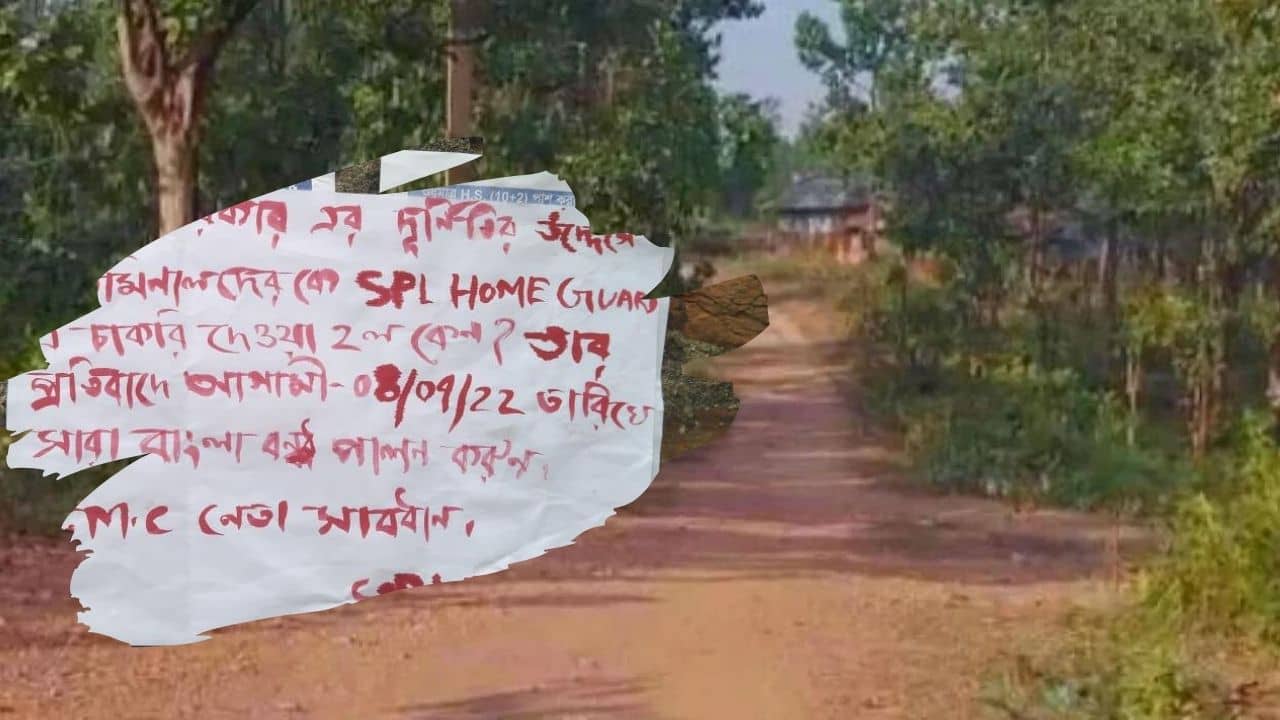 H.S. (10+2) পাশ করা
রকার এর দূর্নিতির উদ্দেশে
মিনালদের কে SPL HOME GUARD
চাকরি দেওয়া হল কেন? তার
প্রতিবাদে আগামী - 08/04/22 তারিখে
সারা বাংলা বনধ পালন করুন,
M.C নেতা সাবধান,